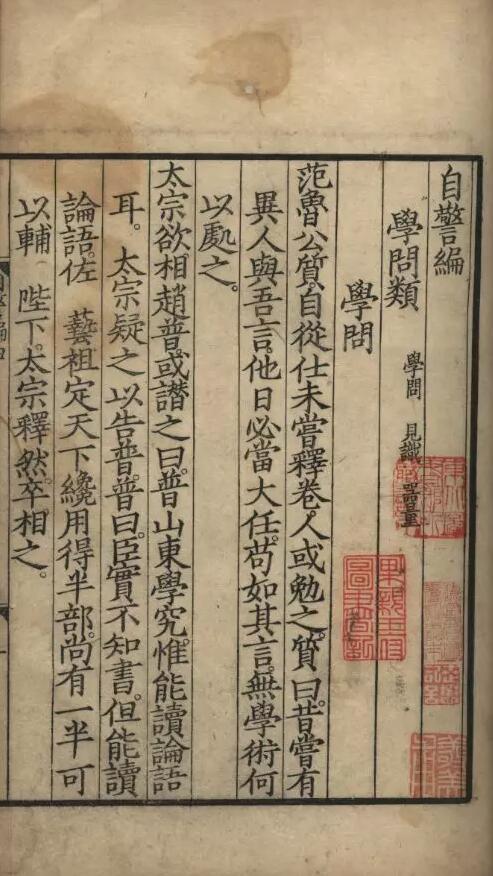 自警編
學問類　學問　見識　器量
學問
范魯公質自從仕未嘗釋卷人或勉之質曰昔嘗有
異人與吾言他日必當大任苟如其言無學術何
以處之
太宗欲相趙普或譖之曰普山東學究惟能讀論語
耳　太宗疑之　以告普普曰臣實不知書但能讀
論語佐　藝祖定天下纔用得半部尚有一半可
以輔　陛下太宗釋然卒相之